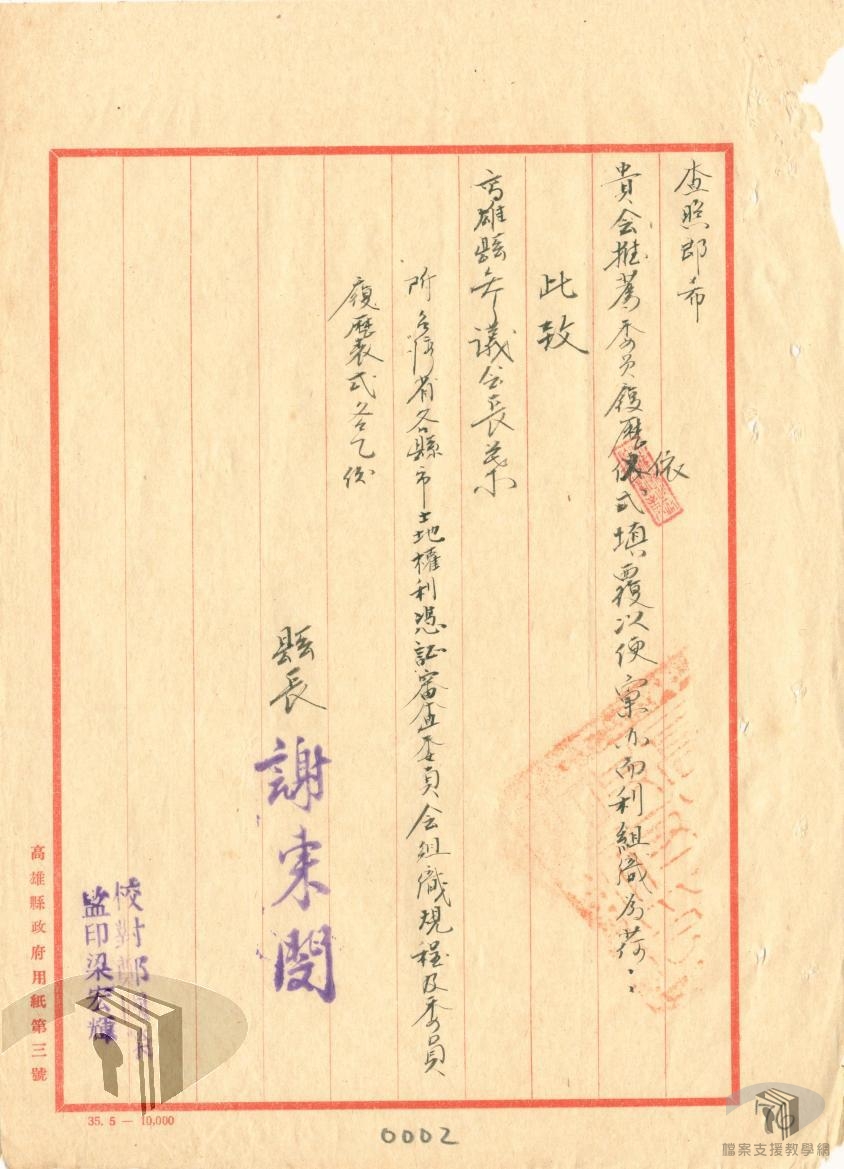 查照即希
貴会推薦委員履歷依式填覆以便彙办而利組織為荷
依
此致
高雄縣参議会長
附台湾省各縣市土地權利憑証審查委員会組織規程及委員
履歷表式各乙份
縣長 謝東閔
校對鄭
監印梁宏輝
高雄縣政府用紙第三號
35. 5 — 10,000
0002
76
檔案支援教學網